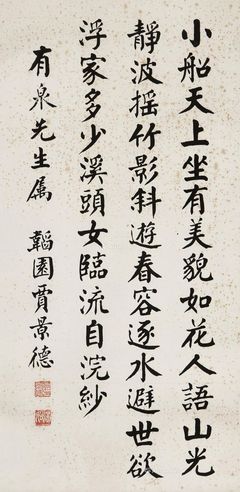 小船天上坐有美貌如花人語山光
靜波摇竹影斜遊春容逐水避世欲
浮家多少溪頭女臨流自浣紗
有泉先生属　韜園賈景德